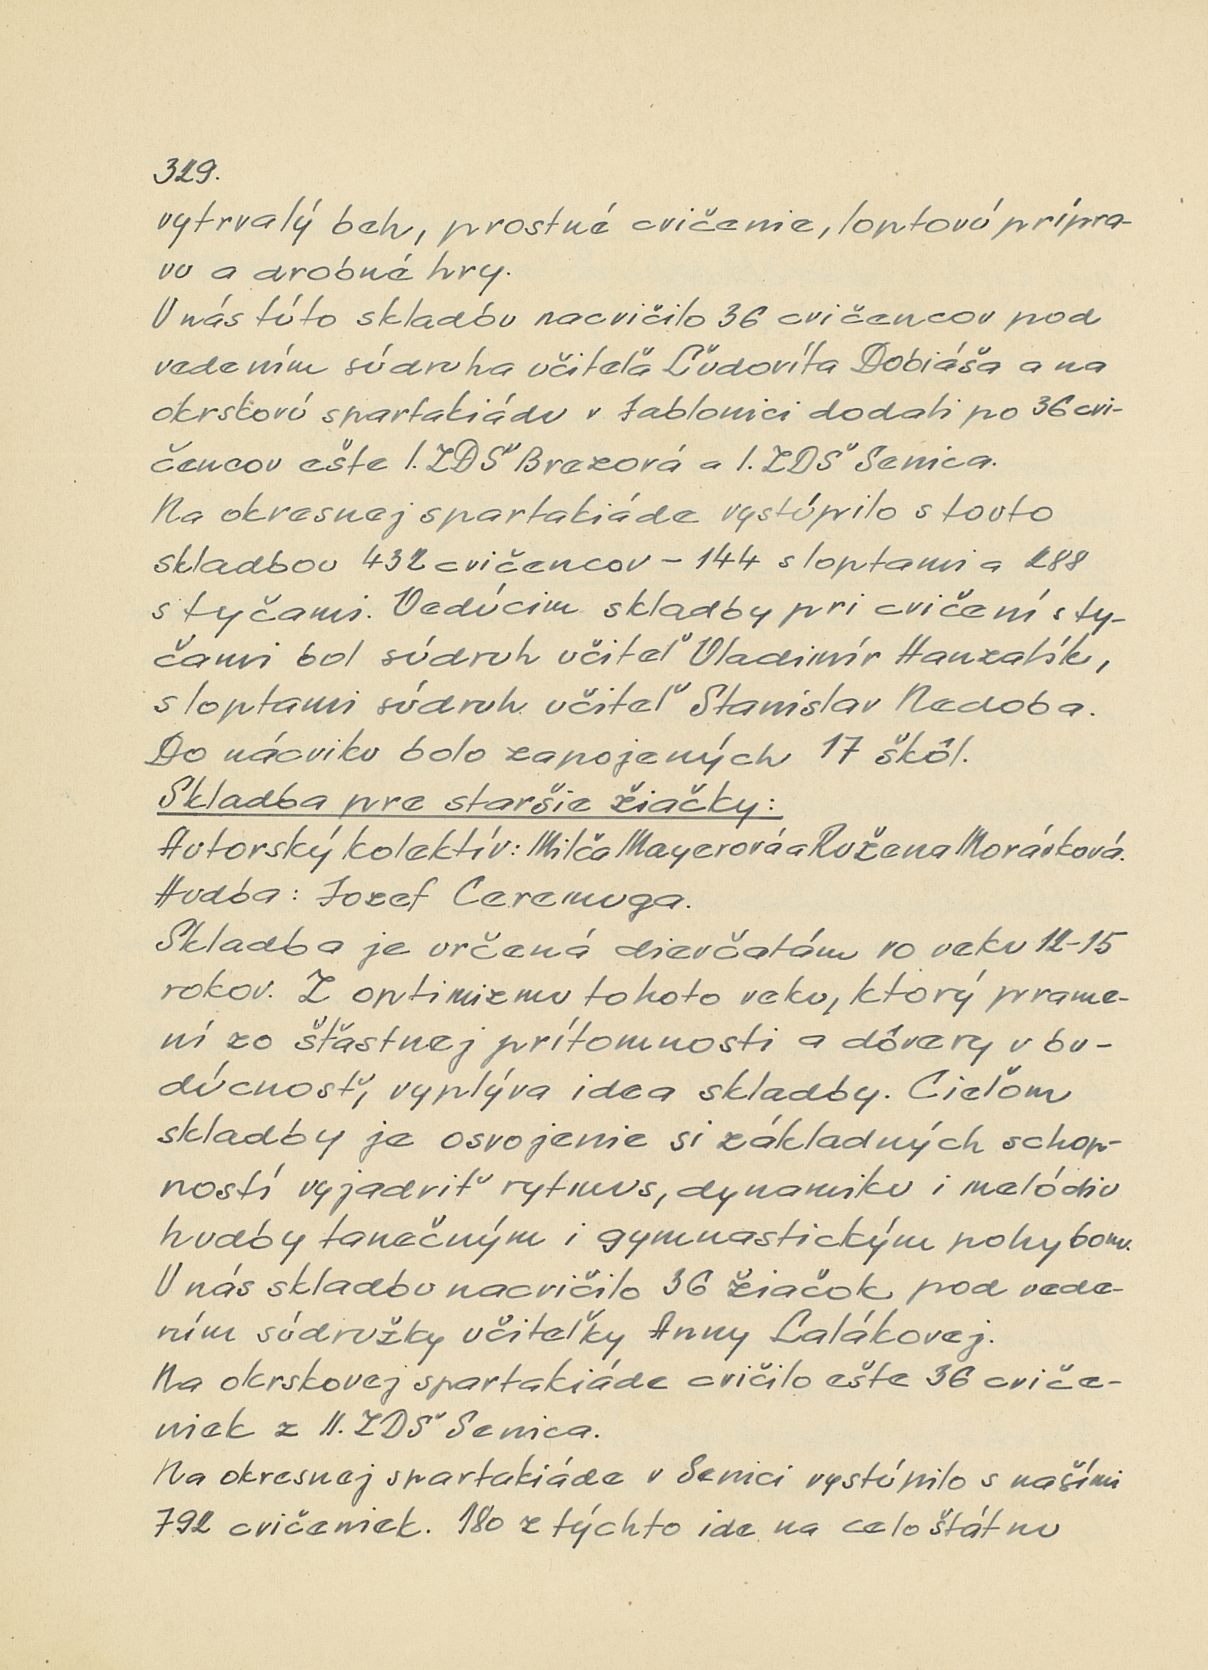 329.
vytrvalý beh, prostné cvičenie, loptovú prípra-
vu a drobné hry.
U nás túto skladbu nacvičilo 36 cvičencov pod
vedením súdruha učiteľa Ľudovíta Dobiáša a na
okrskovú spartakiádu v Jablonici dodali po 36 cvi-
čencov ešte I. ZDŠ Brezová a I. ZDŠ Senica.
Na okresnej spartakiáde vystúpilo s touto
skladbou 432 cvičencov – 144 s loptami a 288
s tyčami. Vedúcim skladby pri cvičení s ty-
čami bol súdruh učiteľ Vladimír Hanzalík,
s loptami súdruh učiteľ Stanislav Nedoba.
Do nácviku bolo zapojených 17 škôl.
Skladba pre staršie žiačky:
Autorský kolektív: Milča Mayerová a Ružena Morávková.
Hudba: Jozef Ceremuga.
Skladba je určená dievčatám vo veku 12-15
rokov. Z optimizmu tohoto veku, ktorý prame-
ní zo šťastnej prítomnosti a dôvery v bu-
dúcnosť, vyplýva idea skladby. Cieľom
skladby je osvojenie si základných schop-
ností vyjadriť rytmus, dynamiku i melódiu
hudby tanečným i gymnastickým pohybom.
U nás skladbu nacvičilo 36 žiačok pod vede-
ním súdružky učiteľky Anny Lalákovej.
Na okrskovej spartakiáde cvičilo ešte 36 cviče-
niek z II. ZDŠ Senica.
Na okresnej spartakiáde v Senici vystúpilo s našími
792 cvičeniek. 180 z týchto ide na celoštátnu